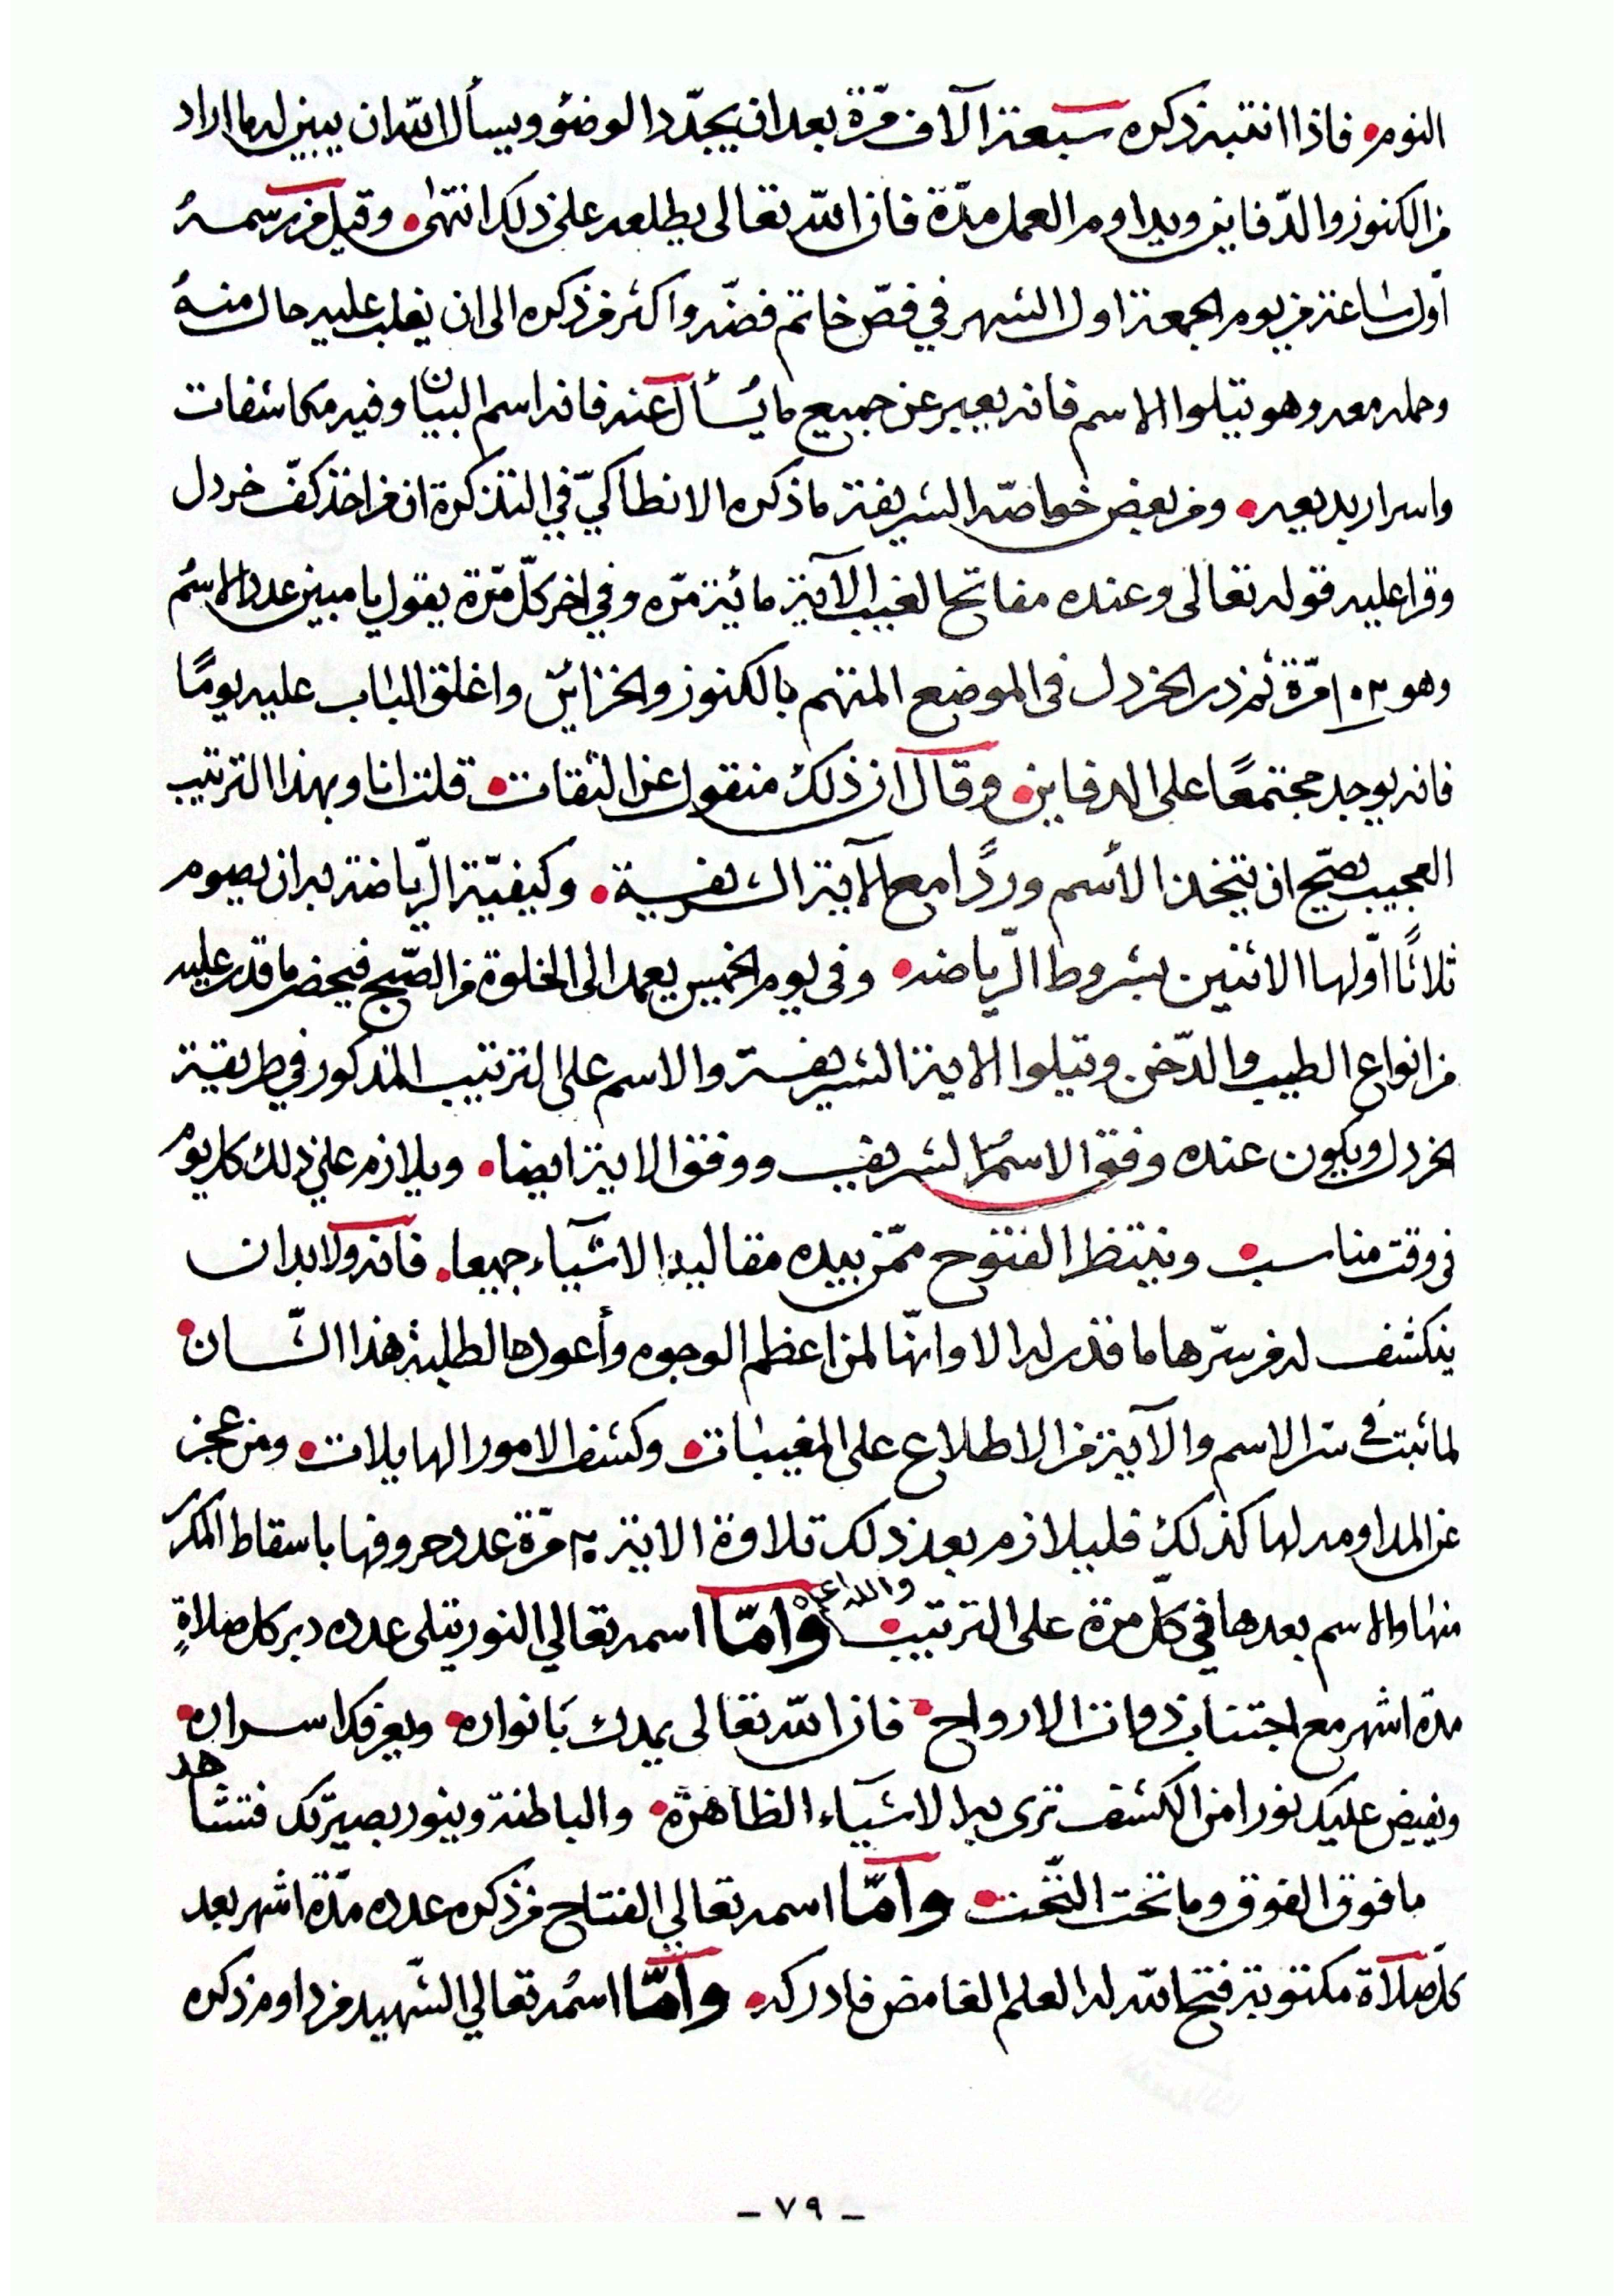 النوم • فاذا انتبه ذكره سبعة آلاف مرّة بعد ان يجدّد الوضئو ويسأل الله ان يبين له ما اراد
من الكنوز والدّفاين ويداوم العمل مدّة فان الله تعالى يطلعه على ذلك انتهى • وقيل من رسمهُ
أول ساعة من يوم الجمعة اول الشهر في فصّ خاتم فضّه واكثر من ذكره الى ان يغلب عليه حال منهُ
وحمله معه وهو يتلوا الاسم فانه يعبر عن جميع ما يُسأل عنه فانه اسم البيان وفيه مكاشفات
واسرار بديعه • ومن بعض خواصّه الشريفة ما ذكره الانطاكيّ في التذكرة ان من اخذ كفّ خردل
وقرا عليه قوله تعالى وعنده مفاتح الغيب الآية مائة مرّه وفي اخر كلّ مرّة يقول يا مبين عدد الاسم
وهو ١٠٢ مرّة ثم ذر الخردل فى الموضع المتهم بالكنوز والخزائن واغلق الباب عليه يومًا
فانه يوجد مجتمعًا على الدفاين • وقال ان ذلك منقول عن الثقات • قلت انا وبهذا الترتيب
العجيب يصحّ ان يتخذ الأسم وردًا مع الآية الشريفة • وكيفيّة الرّياضة به ان يصوم
ثلاثًا اوّلها الاثنين بشروط الرّياضه • وفى يوم الخميس يعمد الى الخلوة من الصّبح فيحضر ما قدر عليه
من انواع الطيب والدّخن ويتلوا الاية الشريفة والاسم على الترتيب المذكور في طريقة
الخردل ويكون عنده وفق الاسم الشريف ووفق الاية ايضا • ويلازم على ذلك كل يوم
فى وقت مناسب • وينتظر الفتوح ممّن بيده مقاليد الاشياء جميعا • فانه ولا بد ان
ينكشف له من سرّها ما قدر له الا وانّها لمن اعظم الوجوه وأعودها لطلبة هذا الشّان •
لما ثبت فى سر الاسم والآية من الاطلاع على المغيبات • وكشف الامور الهايلات • ومن عجز
عن المداومه لها كذلك فليلازم بعد ذلك تلاوة الاية ٢٠ مرّة عدد حروفها باسقاط المكرّر
منها والاسم بعدها في كلّ مرّة على الترتيب • والله اعلم وامّا اسمه تعالي النور يتلى عدده دبر كل صلاةٍ
مدة اشهر مع اجتناب ذوات الارواح • فان الله تعالى يمدك بانواره • ويعرفك اسراره •
ويفيض عليك نورا من الكشف ترى به الاشياء الظاهرة • والباطنة وينور بصيرتك فتشاهد
ما فوق الفوق وما تحت التّحت • وامّا اسمه تعالي الفتاح من ذكره عدده مدّة اشهر بعد
كل صلاة مكتوبة فتح الله له العلم الغامض فادركه • وامّا اسمُه تعالي الشّهيد من داوم ذكره
– ٧٩ –